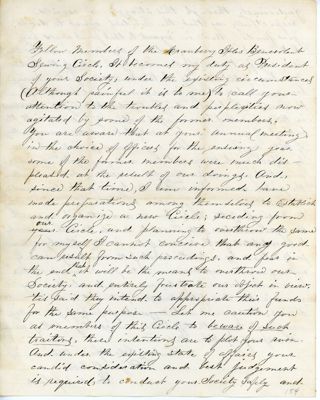 Fellow Members of the Cranberry Isles Benevolent
Sewing Circle, It becomes my duty as President
of your Society, under the existing circumstances
(Although painful it is to me) to call your
attention to the troubles and perplexities now
agitated by some of the former members.
You are aware that at your annual meeting
in the choice of officers for the ensuing year
some of the former members were much dis-
pleased at the result of our doings. And,
since that time, I am informed have
made preparations among themselves to Establish
and organize a new Circle; seceding from
our Circle, and planning to overthrow the same
for myself I cannot conceive that any good
can result from such proceedings. and fear in
the end, it will be the means to overthrow our
Society and entirely frustrate our object in view.
tis said they intend to appropriate their funds
for the same purpose — Let me caution you
as members of this Circle to beware of such
traitors, their intentions are to plot your ruin.
And under the existing state of affairs your
candid consideration and best judgement
is required, to conduct your Society safely and